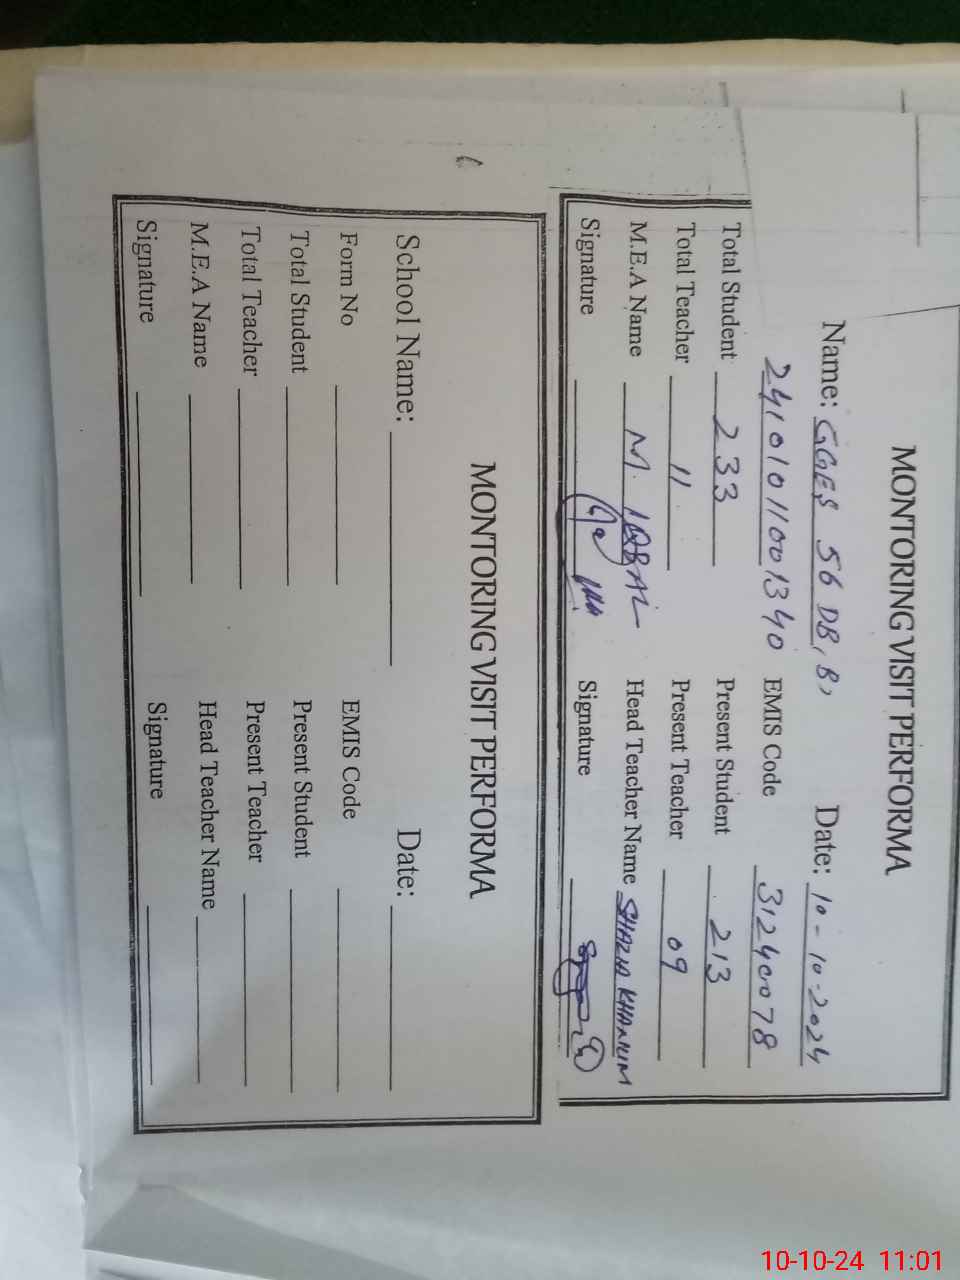 MONTORING VISIT PERFORMA
Name: GGES 56 DB, B, Date: 10-10-2024
24101011001340 EMIS Code 31240078
Total Student 233 Present Student 213
Total Teacher 11 Present Teacher 09
M.E.A Name M. IQBAL Head Teacher Name SHAZIA KHANUM
Signature Signature
MONTORING VISIT PERFORMA
School Name: Date:
Form No EMIS Code
Total Student Present Student
Total Teacher Present Teacher
M.E.A Name Head Teacher Name
Signature Signature
10-10-24 11:01